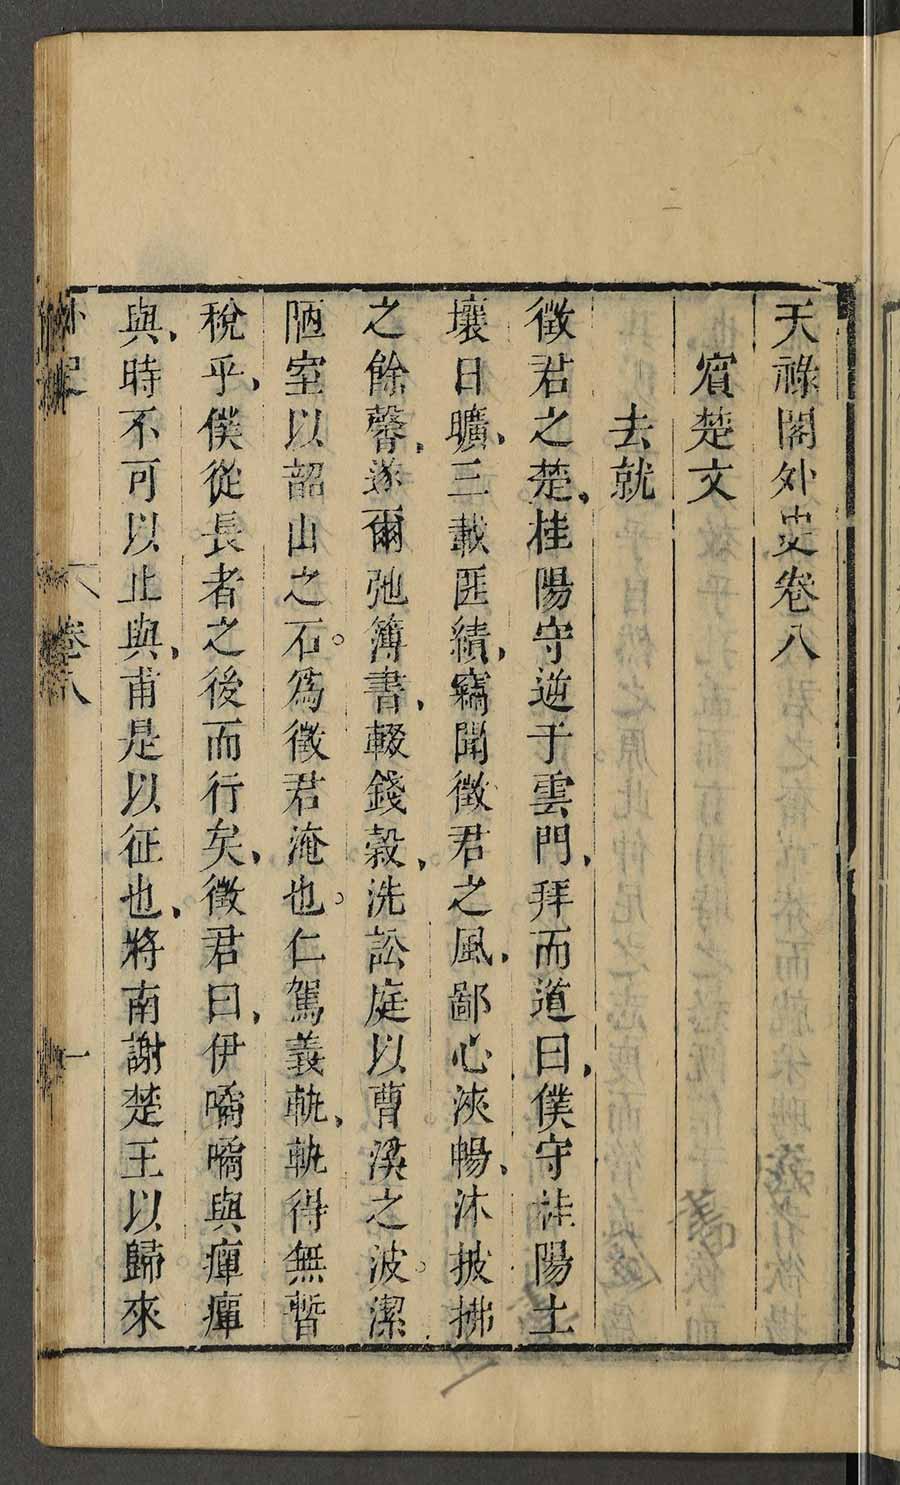 天祿閣外史卷八
賓楚文
去就
徵君之楚、桂陽守逆于雲門、拜而道曰、僕守桂陽土
壤日曠、三載匪績、竊聞徵君之風、鄙心浹暢、沐披拂
之餘馨、遂爾弛簿書、輟錢穀、洗訟庭以曹溪之波。潔
陋室以韶山之石。爲徵君淹也。仁駕義軌、軌得無暫
稅乎、僕從長者之後而行矣、徵君曰、伊嚅嚅與瘒瘒
與、時不可以止與、甫是以征也、將南謝楚王以歸來
外史
卷八
一